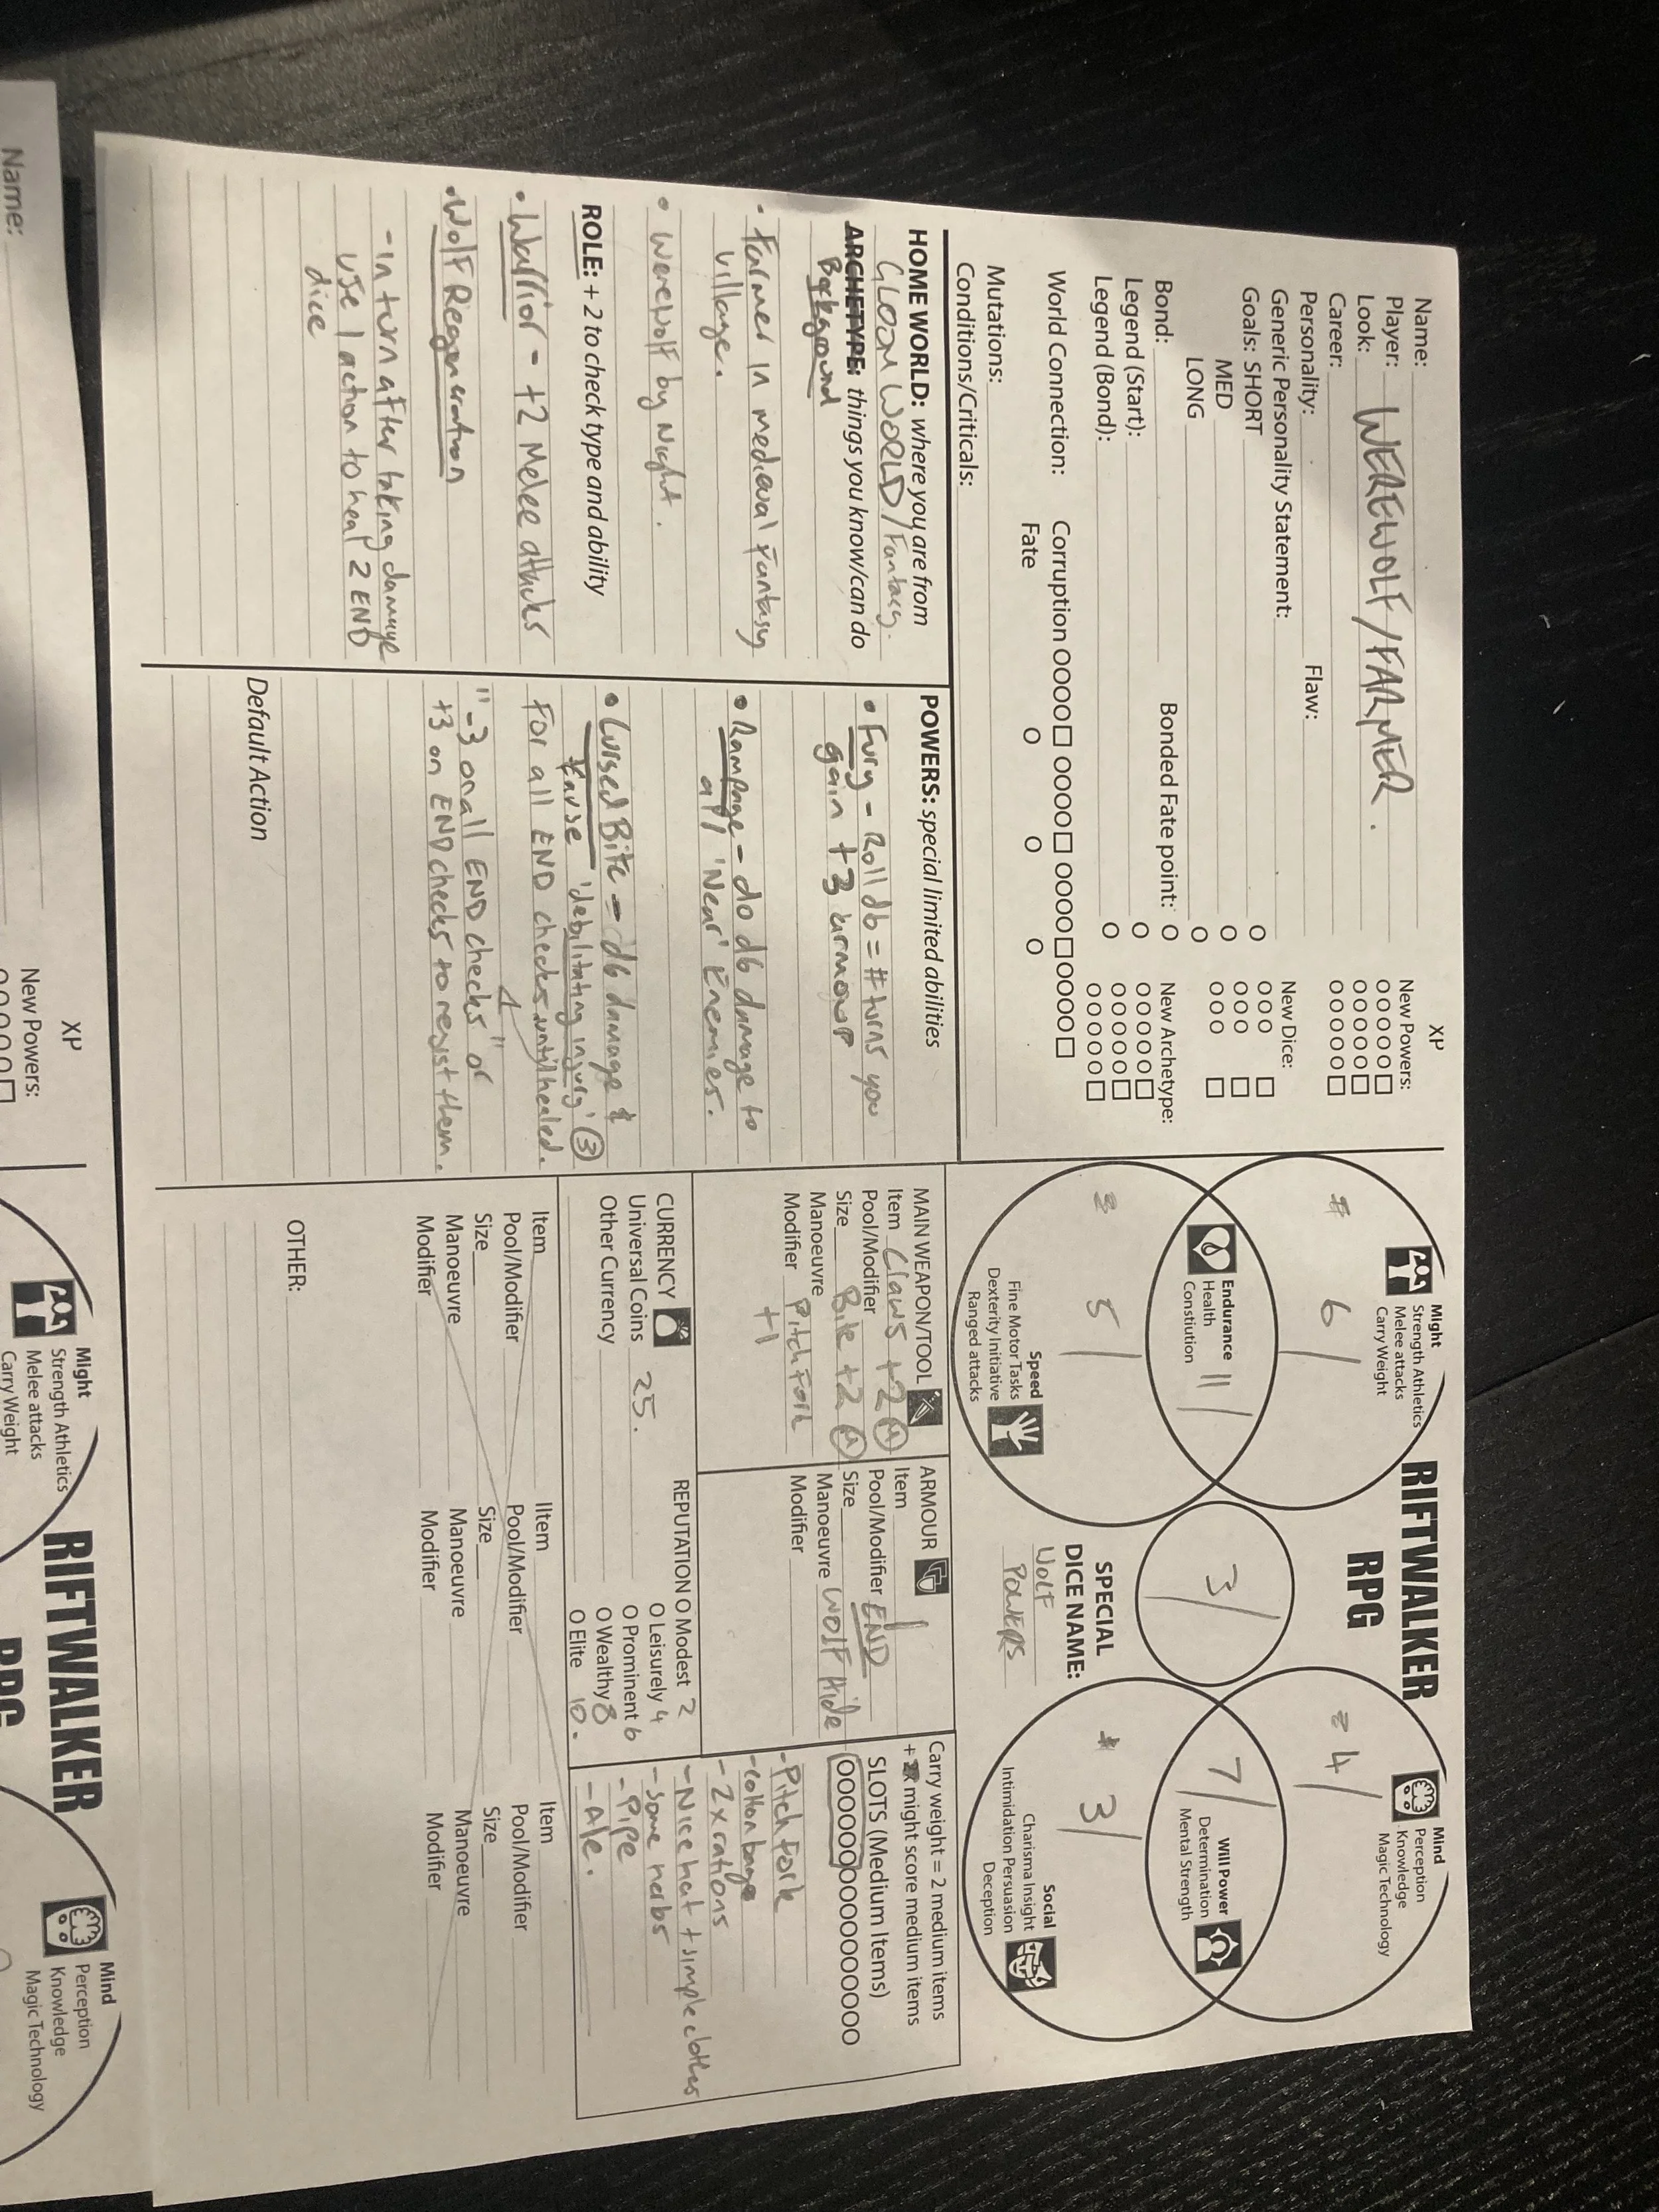 RIFTWALKER
RPG
XP
Name:
Player:
Look: WEREWOLF/FARMER.
Career:
Personality:
Flaw:
Generic Personality Statement:
Goals: SHORT
MED
LONG
Bond:
Bonded Fate point: O
Legend (Start):
Legend (Bond):
World Connection:
Corruption OOOO□ OOOO□ OOOO□OOOO□
Fate O O O
Mutations:
Conditions/Criticals:
New Powers:
OOOOO□
OOOOO□
OOOOO□
New Dice:
OOO □
OOO □
OOO □
New Archetype:
OOOOO□
OOOOO□
OOOOO□
Might
Strength Athletics
Melee attacks
Carry Weight
6/
Endurance
Health
Constiution
11/
5/
Speed
Fine Motor Tasks
Dexterity Initiative
Ranged attacks
3/
SPECIAL
DICE NAME:
WOLF
POWERS
Mind
Perception
Knowledge
Magic Technology
4/
Will Power
Determination
Mental Strength
7/
3/
Social
Charisma Insight
Intimidation Persuasion
Deception
HOME WORLD: where you are from
GLOOM WORLD/Fantasy.
ARCHETYPE: things you know/can do
Background
- Farmer in medieval Fantasy
village.
• Werewolf by Night.
ROLE: + 2 to check type and ability
• Warrior - +2 Melee attacks
• Wolf Regeneration
- In turn after taking damage
use 1 action to heal 2 END
dice
POWERS: special limited abilities
• Fury - Roll d6 = # turns you
gain +3 armour
• Rampage - do d6 damage to
all 'Near' Enemies.
• Cursed Bite - d6 damage &
cause 'debilitating injury' ③
For all END checks until healed.
"-3 on all END checks" or
+3 on END checks to resist them.
Default Action
MAIN WEAPON/TOOL
Item Claws +2
Pool/Modifier
Size Bite +2
Manoeuvre
Modifier Pitchfork
+1
ARMOUR
Item
Pool/Modifier END
Size
Manoeuvre Wolf Hide
Modifier
Carry weight = 2 medium items
+ might score medium items
SLOTS (Medium Items)
OOOOOOOOOOOOOOOO
- Pitchfork
- cotton bag
- 2x rations
- Nice hat + simple clothes
- some herbs
- Pipe
- Ale.
CURRENCY
Universal Coins 25.
Other Currency
REPUTATION O Modest 2
O Leisurely 4
O Prominent 6
O Wealthy 8
O Elite 10.
Item
Pool/Modifier
Size
Manoeuvre
Modifier
IItem
Pool/Modifier
Size
Manoeuvre
Modifier
Item
Pool/Modifier
Size
Manoeuvre
Modifier
OTHER:
Name:
XP
New Powers:
Might
Strength Athletics
Melee attacks
Carry Weight
RIFTWALKER
RPG
Mind
Perception
Knowledge
Magic Technology